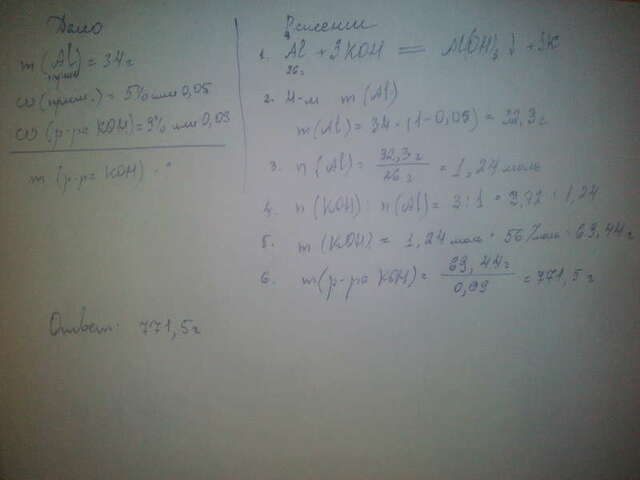 Дано
m (Al) = 34 г
ω (прим.) = 5% или 0,05
ω (р-ра KOH) = 9% или 0,09
m (р-ра KOH) - ?
Решение
1. Al + 3KOH = Al(OH)3 ↓ + 3K
26г
2. Н-м m (Al)
m (Al) = 34 · (1 - 0,05) = 32,3 г
3. n (Al) = 32,3 г / 26 г = 1,24 моль
4. n (KOH) : n (Al) = 3 : 1 = 3,72 : 1,24
5. m (KOH) = 1,24 моль · 56 г/моль = 69,44 г
6. m (р-ра KOH) = 69,44 г / 0,09 = 771,5 г
Ответ: 771,5 г